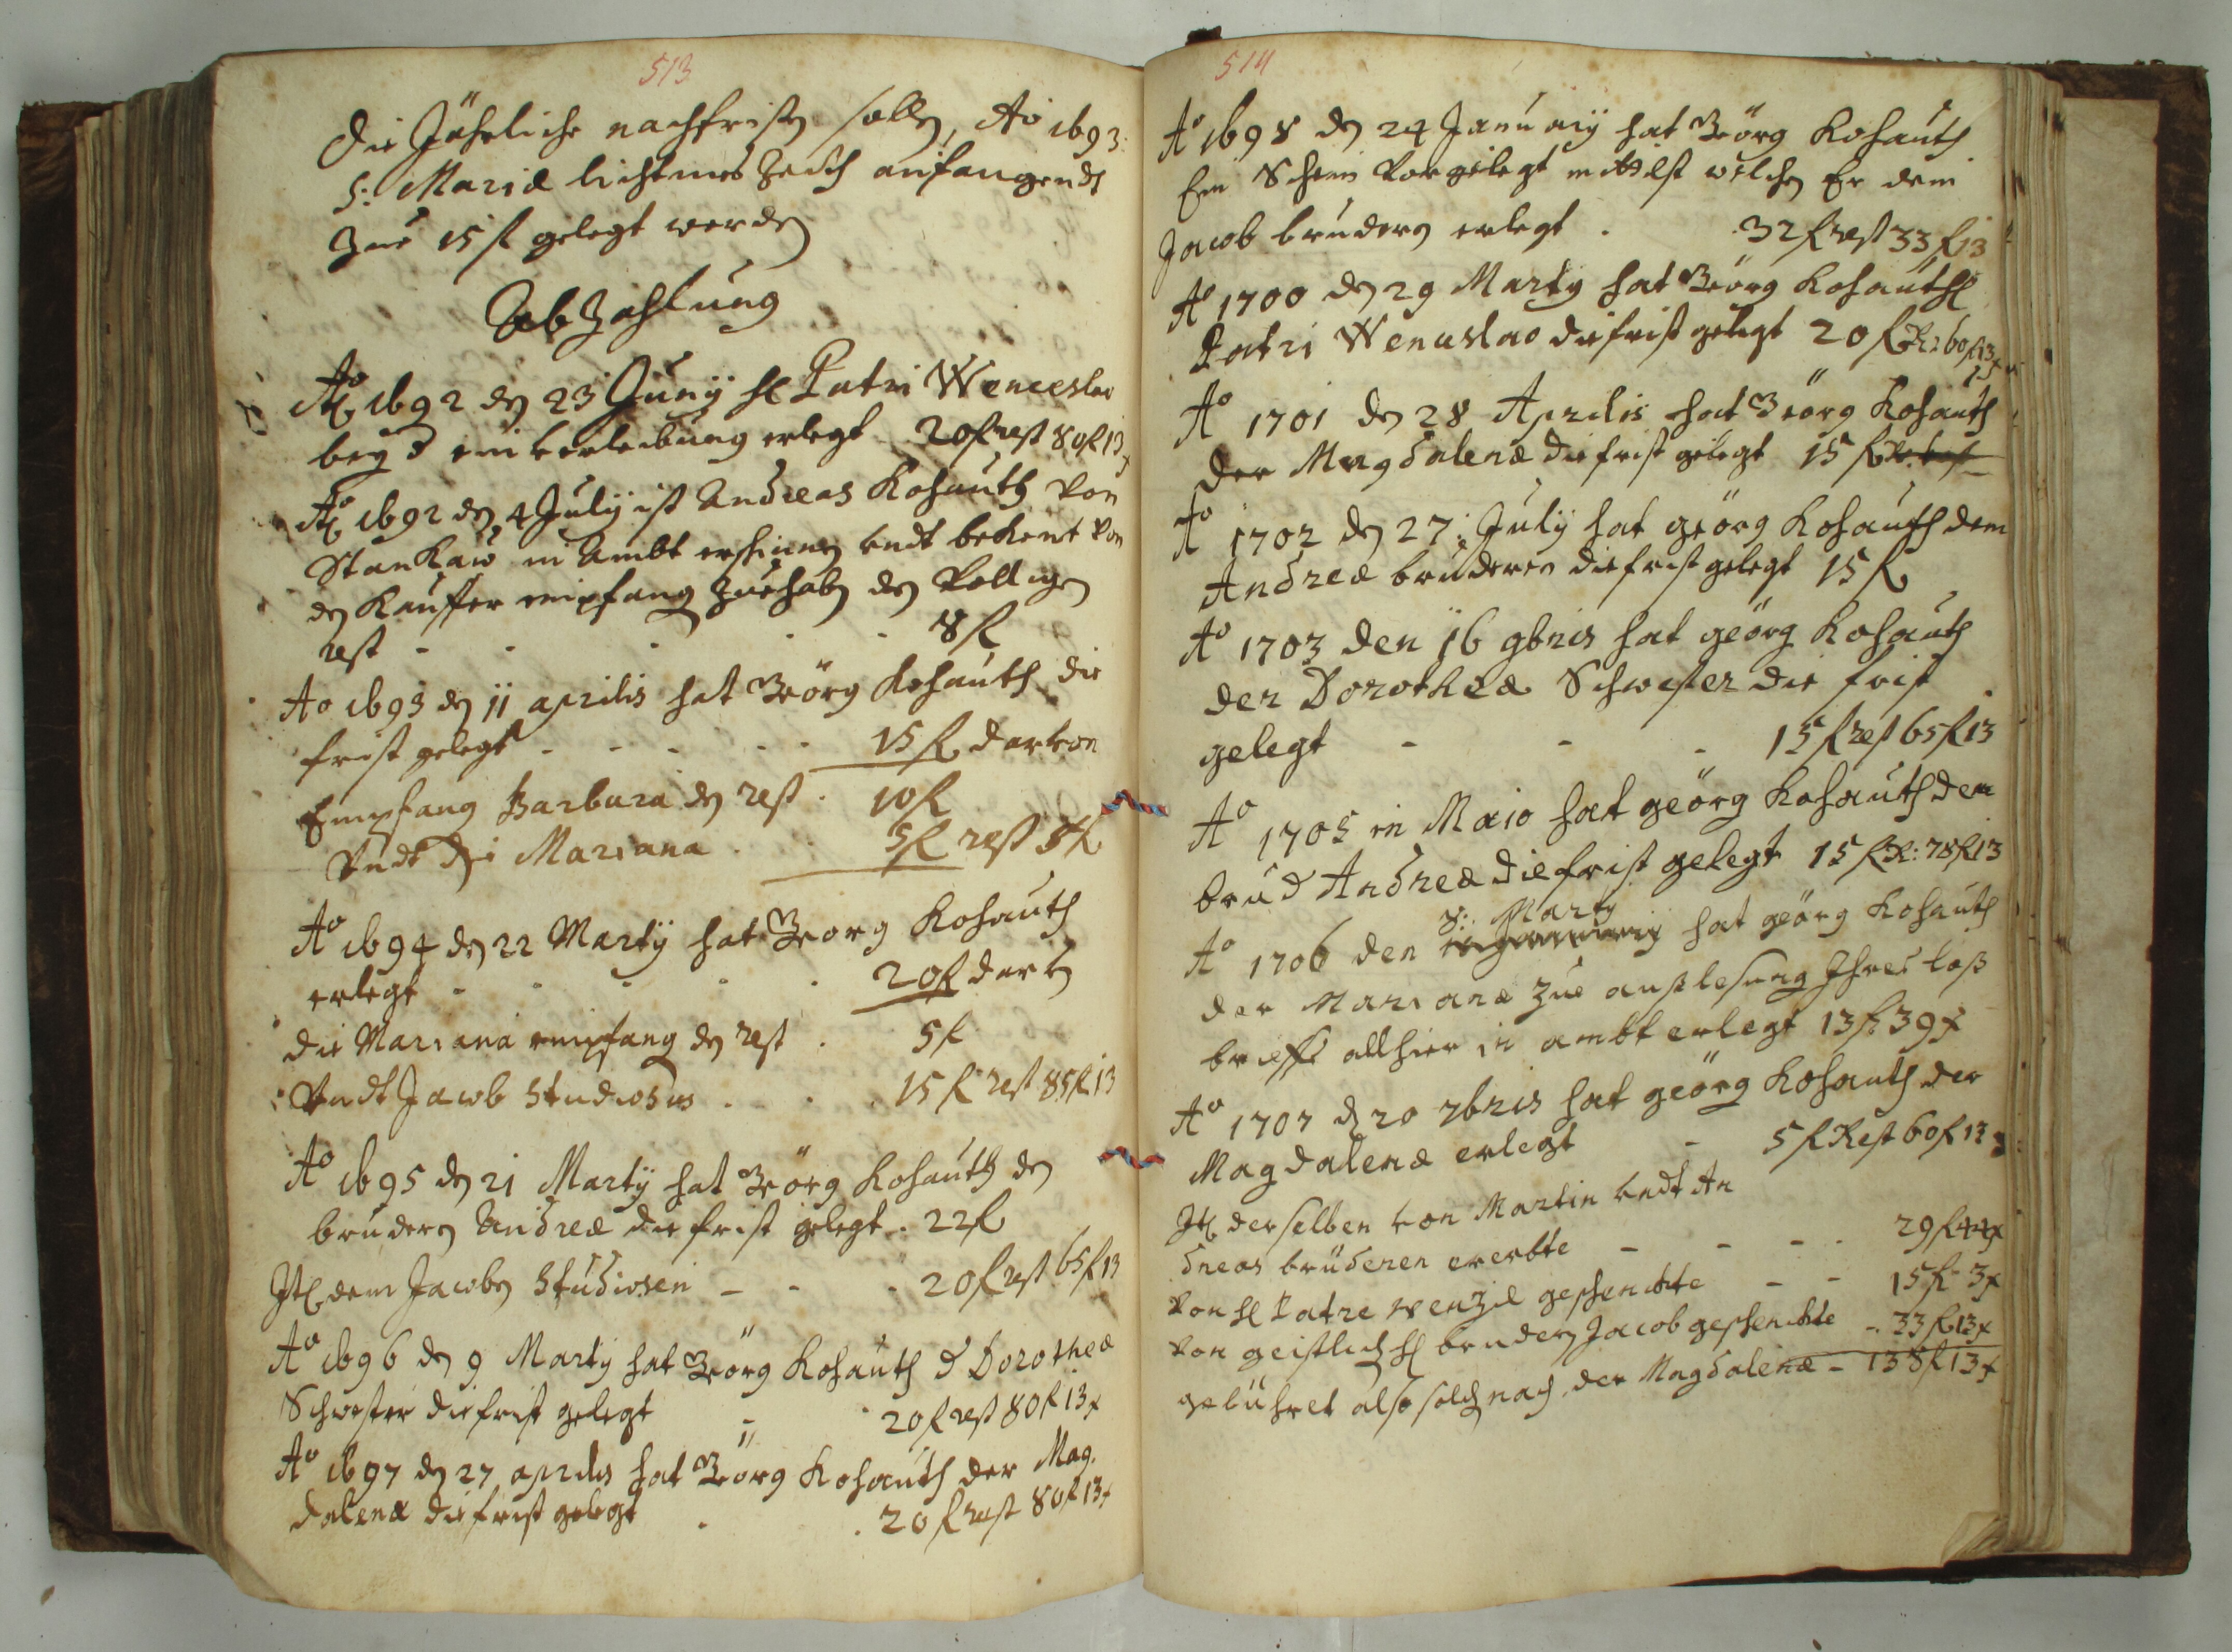 513
Die Jährliche nachfristen sollen, Ao 1693.
S: Mariæ lichtmes Zeith anfangendt
Zue 15 fl gelegt werden
Abzahlung
Ao 1692 den 23 Juny H Patri Wenceslao
bey d einverleibung erlegt 20 fl rest 80 fl 13 x
Ao 1692 den 4 July ist Andreas Kohauth von
Stankaw in Ambt erschinen undt bekent von
den Kauffer empfang zue haben den völligen
rest - - - - - 8 fl
Ao 1693 den 11 aprilis hat Geörg Kohauth die
frist gelegt - - - - - 15 fl darvon
Empfang Barbara den rest . 10 fl
Undt die Mariana . . 5 fl rest 5 fl
Ao 1694 den 22 Marty hat Georg Kohauth
erlegt - - - - . 20 fl darv
die Mariana empfang den rest . 5 fl
Undt Jacob Studiosus . - . . 15 fl rest 85 fl 13
Ao 1695 den 21 Marty hat Geörg Kohauth den
brudern Andreæ die frist gelegt . 22 fl
Itl dem Jacoben Studiosen - - . 20 fl rest 65 fl 13
Ao 1696 den 9 Marty hat Geörg Kohauth d Dorotheæ
Schwester die frist gelegt - . 20 fl rest 80 fl 13 x
Ao 1697 den 27 aprilis hat Geörg Kohauth der Mag-
dalenæ die frist gelegt . . 20 fl rest 80 fl 13 x
514
Ao 1698 den 24 January hat Geörg Kohauth
Ein Schein vorgelegt mittelst welchen Er dem
Jacob brudern erlegt . 32 fl rest 33 fl 13
Ao 1700 den 29 Marty hat Geörg Kohauth H
Patri Wenceslao die frist gelegt 20 fl R: 60 fl 13 x
Ao 1701 den 28 Aprilis hat Geörg Kohauth
der Magdalenæ die frist gelegt 15 fl
Ao 1702 den 27: July hat geörg Kohauth dem
Andreæ brudern die frist gelegt 15 fl
Ao 1703 den 16 9bris hat geörg Kohauth
der Dorotheæ Schwester die frist
gelegt - - - 15 fl rest 65 fl 13
Ao 1705 in Maio hat geörg Kohauth dem
brud Andreæ die frist gelegt 15 fl R: 78 fl 13
8: Marty
Ao 1706 den hat geörg Kohauth
der Marianæ zue außlesung Ihres loß
brieffs allhier in ambt erlegt 13 fl 39 x
Ao 1707 d 20 7bris hat geörg Kohauth der
Magdalenæ erlegt - 5 fl Rest 60 fl 13
Itl derselben von Martin undt An
dreas brüderen ererbte - - - . 29 fl 44 x
von H Patre wenzel geschenckte - - 15 fl - 3 x
von geistlich H brudern Jacob geschenckte - 33 fl 13 x
gebühret also solchnach der Magdalenæ - 138 fl 13 x